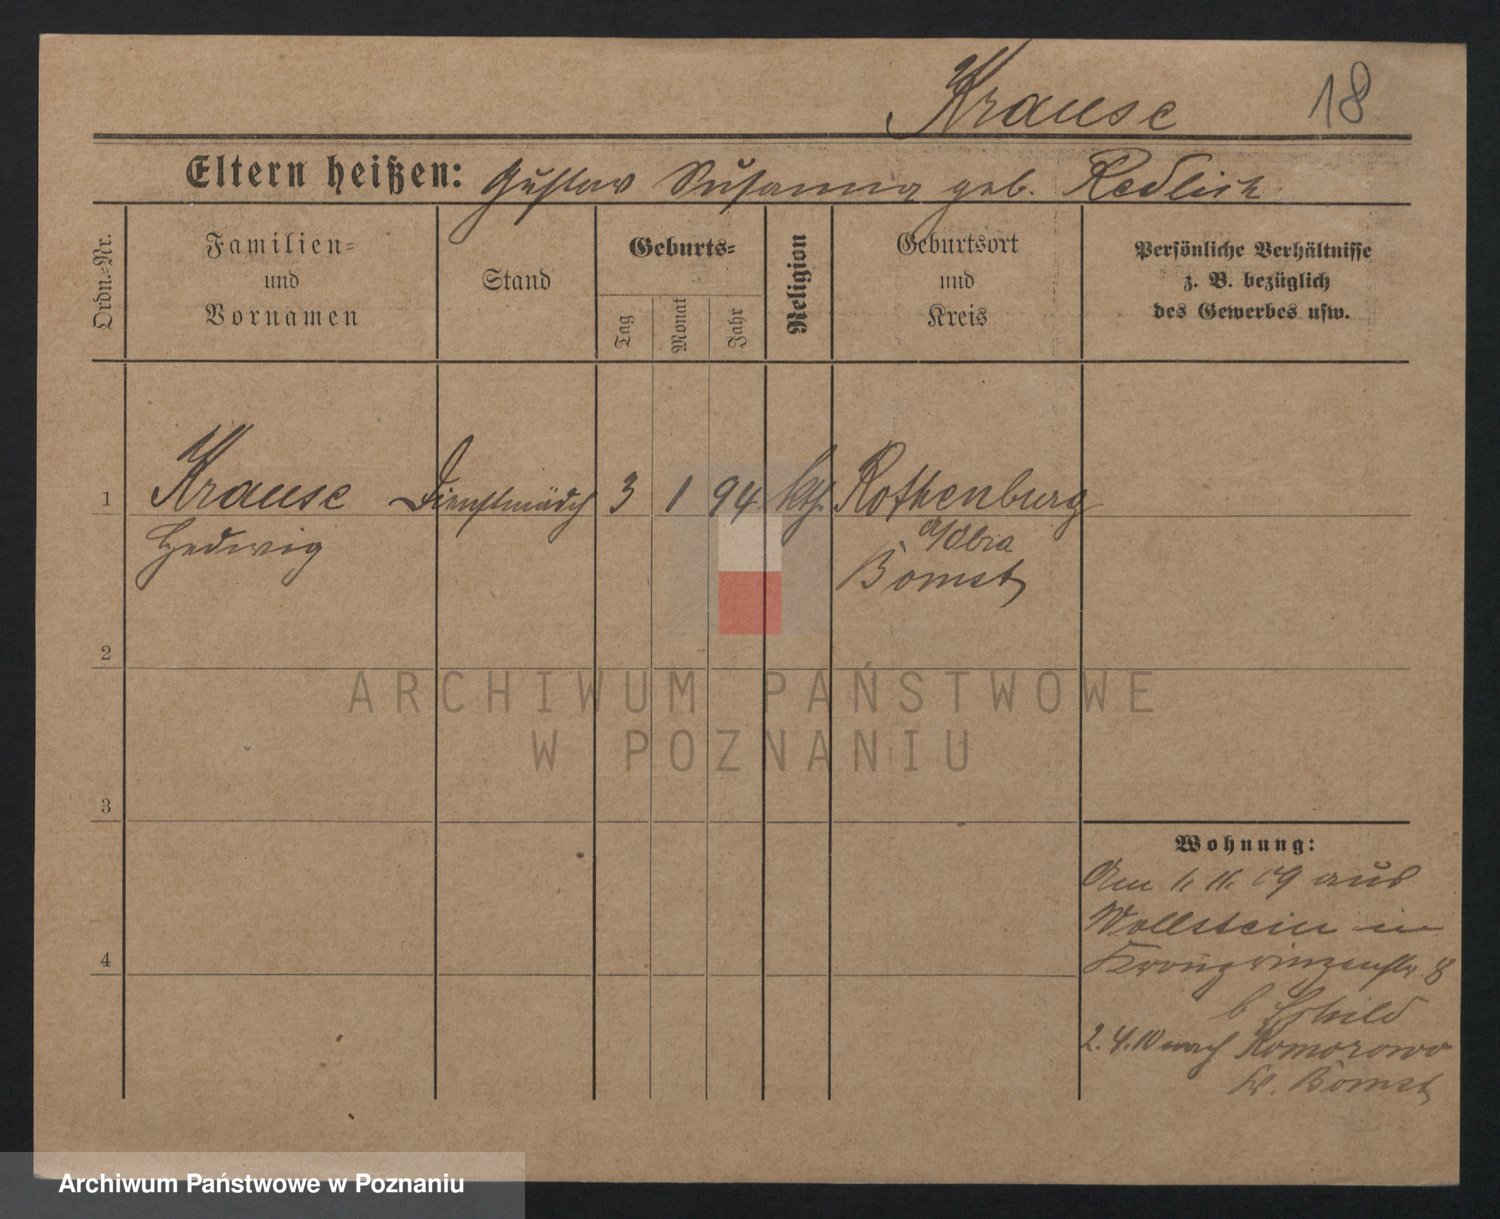 Krause 18
Eltern heißen: Gustav Susanna geb. Redlich
Ordn.-Nr.
Familien-
und
Vornamen
Stand
Geburts-
Tag
Monat
Jahr
Religion
Geburtsort
und
Kreis
Persönliche Verhältnisse
z. B. bezüglich
des Gewerbes usw.
1 Krause Dienstmädch 3 1 94 kth. Rothenburg
Hedwig a/Obra
Bomst
2
ARCHIWUM PAŃSTWOWE
W POZNANIU
3
Wohnung:
Am 1. 11. 09 aus
Wollstein in
4 Kronprinzenstr. 8
b Schild
2. 4. 10 nach Komorowo
Kr. Bomst
Archiwum Państwowe w Poznaniu